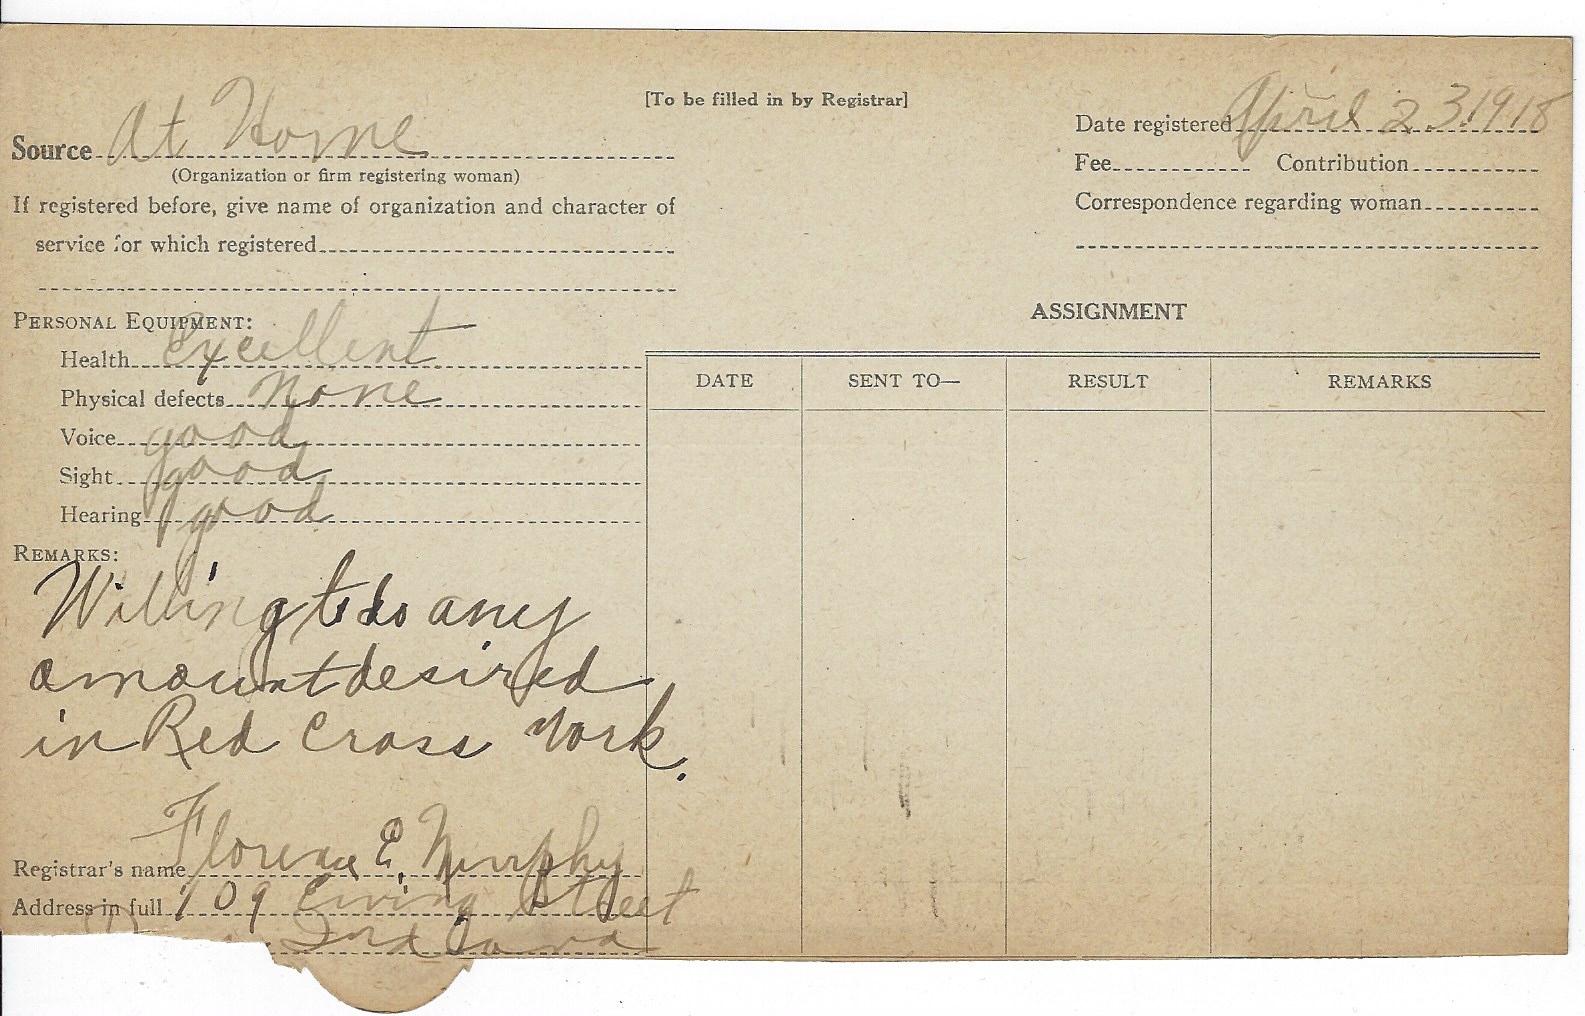 [To be filled in by Registrar]
Source At Home
(Organization or firm registering woman)
If registered before, give name of organization and character of
service for which registered
Date registered April 23.1918
Fee Contribution
Correspondence regarding woman
PERSONAL EQUIPMENT:
Health Excellent
Physical defects None
Voice good
Sight good
Hearing good
REMARKS:
Willing to do any
amount desired
in Red Cross Work.
Registrar's name Florence E. Murphy
Address in full 109 Ewing Street
Indiana
ASSIGNMENT
DATE SENT TO— RESULT REMARKS